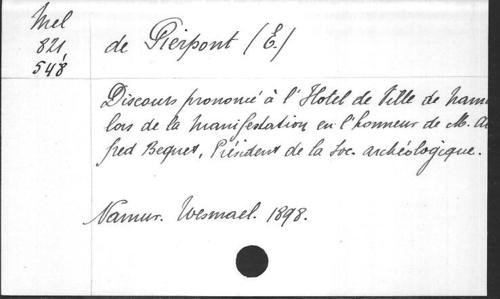 Mel
821,
548
de Pierpont (E.)
Discours prononcé à l'Hotel de Ville de Namu
lors de la manifestation en l'honneur de M. Al
fred Bequet, Président de la Soc. archéologique.
Namur. Wesmael. 1898.